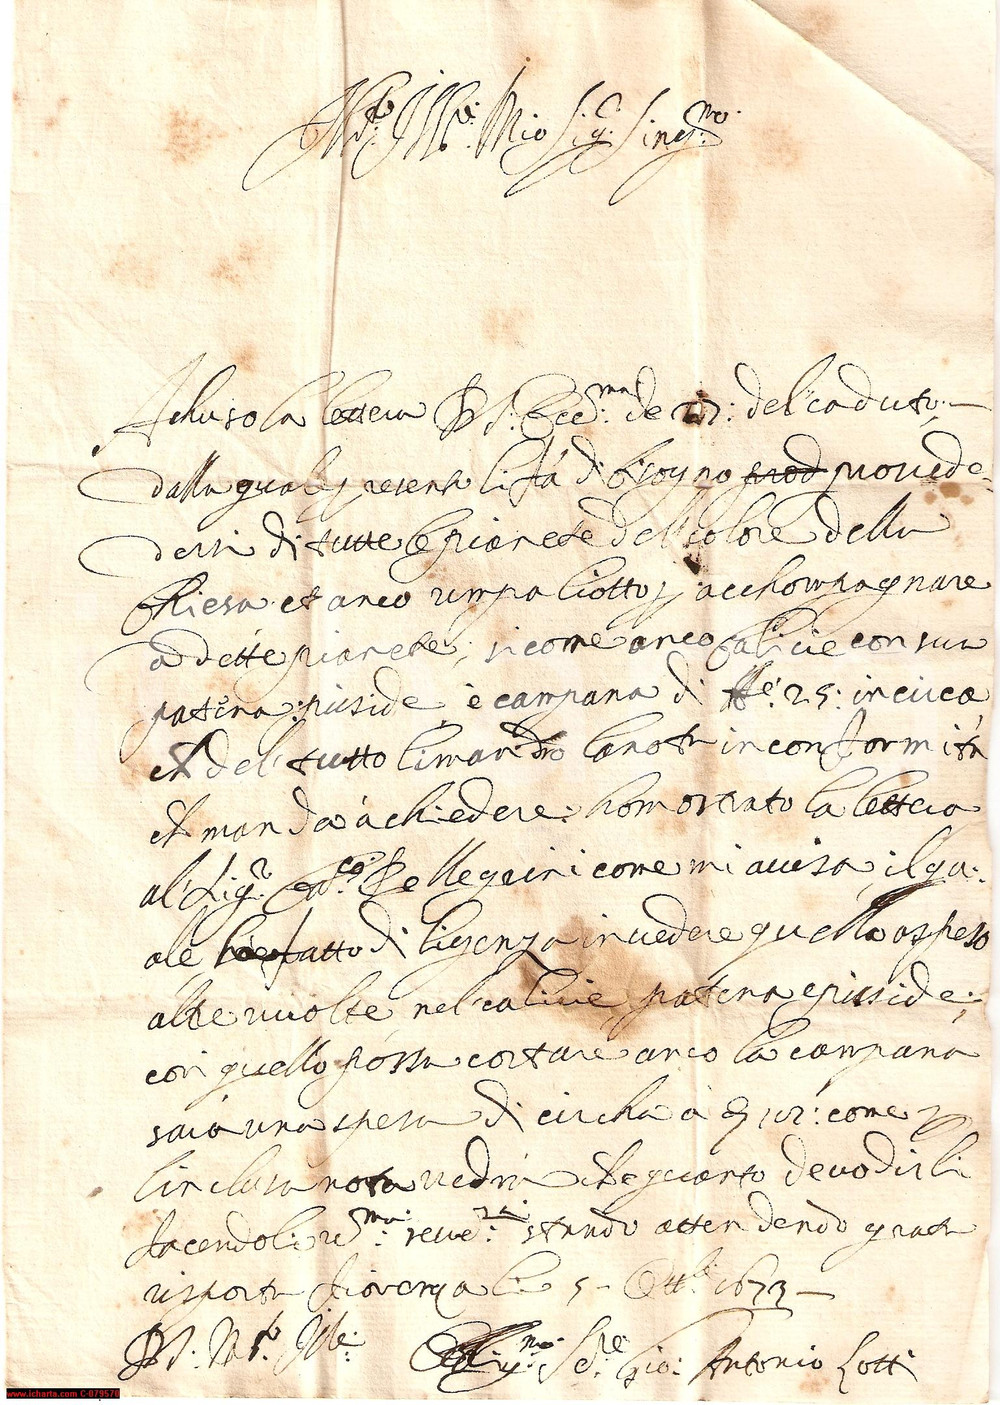 Mto. Illre. Mio Sigr. Singmo.
Achuso la lettera di V.S. Eccma. de 27: del caduto,
dalla quale presenta li fà di bisogno prod provede=
dersi di tutte le pianete del colore della
Chiesa et anco un paliotto p acchompagnare
a dette pianete; sicome anco calicie con sua
patena: pisside, e campana di lbe: 25: in circa
et del tutto li mando la nota in conformità
et manda à chiedere: ho mostrato la lettera
al Sigr. Pellegrini come mi avisa, il qu:
ale fatto diligenza in vedere quello a speso
altre volte nel calicie, patena e pisside;
con quello possa costare anco la campana
sarà una spesa di circha à 102: come p
l'inclusa nota vedrà che quanto devo dirli
facendoli umma. reverza. stando attendendo grata
risposta fiorenza li 5 Ottbe. 1673
Di V.S. Mto. Illre. Obligmo. Sre. Gio: Antonio Lotti
www.icharta.com C-079570